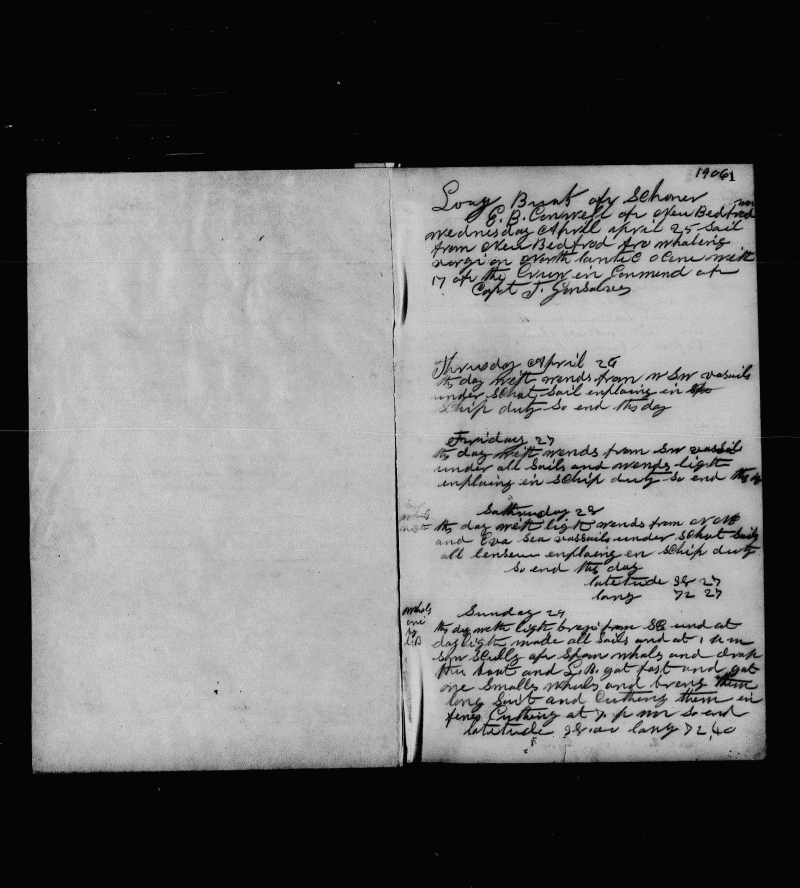 1906 1
Loog Buat of Schoner
E. B. Conwell of New Bedfrod
Wednesday April april 25 Sail
from New Bedfrod fro whaleing
vorgi on North lantic ocene with
17 of the Crew in Conmend of
Capt J. Gonsalves
Thrusday April 26
ths day with wends from W SW vasails
under Schot Sail enplaing in
Schip duty So end ths day
Friday 27
ths day with wends from SW vassail
under all Sails and wends light
enplaing in Schip duty So end ths
Sathruday 28
ths day with light wends from
and Eva Sea vassails under Schot Sails
all enplaing en Schip duty
So end ths day
latetude 38 27
long 72 27
Whals
one
by
L.B
Sunday 29
ths day with light from SE and at
day light made all Sails and at 1
Saw Scully of Spam whals and drap
the boat and L.B. got fast and got
one Smalle whals and breng them
long Suit and Cutheng them in
Cutheng at 7 p m So end
latetude long 72 40